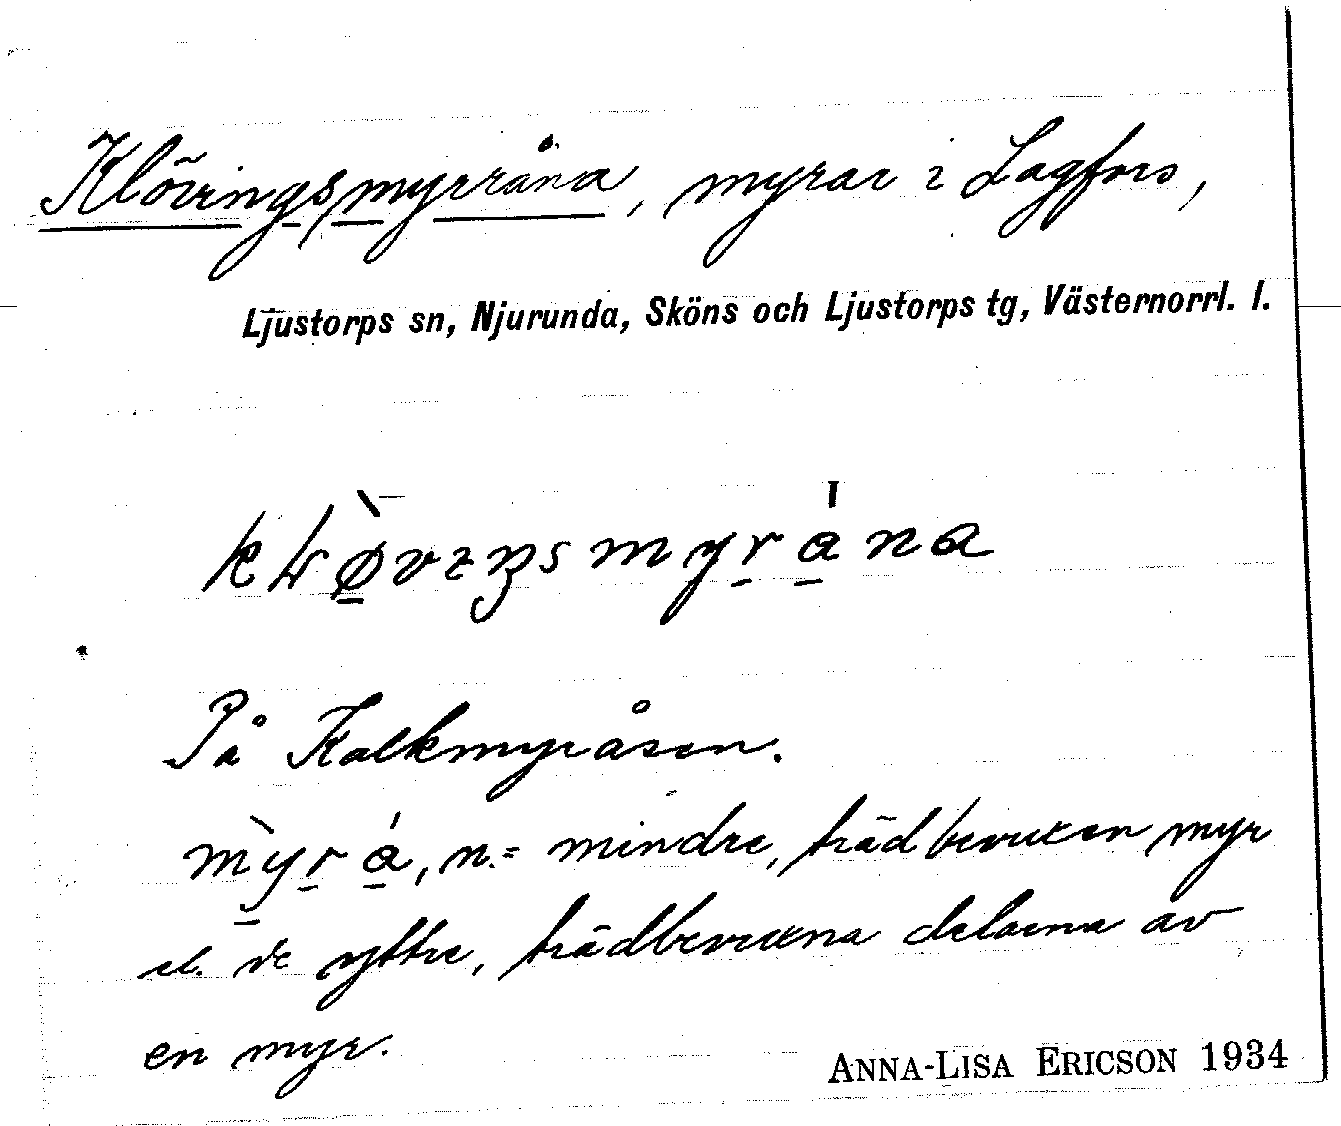 Klövingsmyrråna, myrar i Lagfors,
Ljustorps sn, Njurunda, Sköns och Ljustorps tg, Västernorrl. l.
På Kalkmyråsen.
n. = mindre, trädbevuxen myr
el. de yttre, trädbevuxna delarna av
en myr.
ANNA-LISA ERICSON 1934